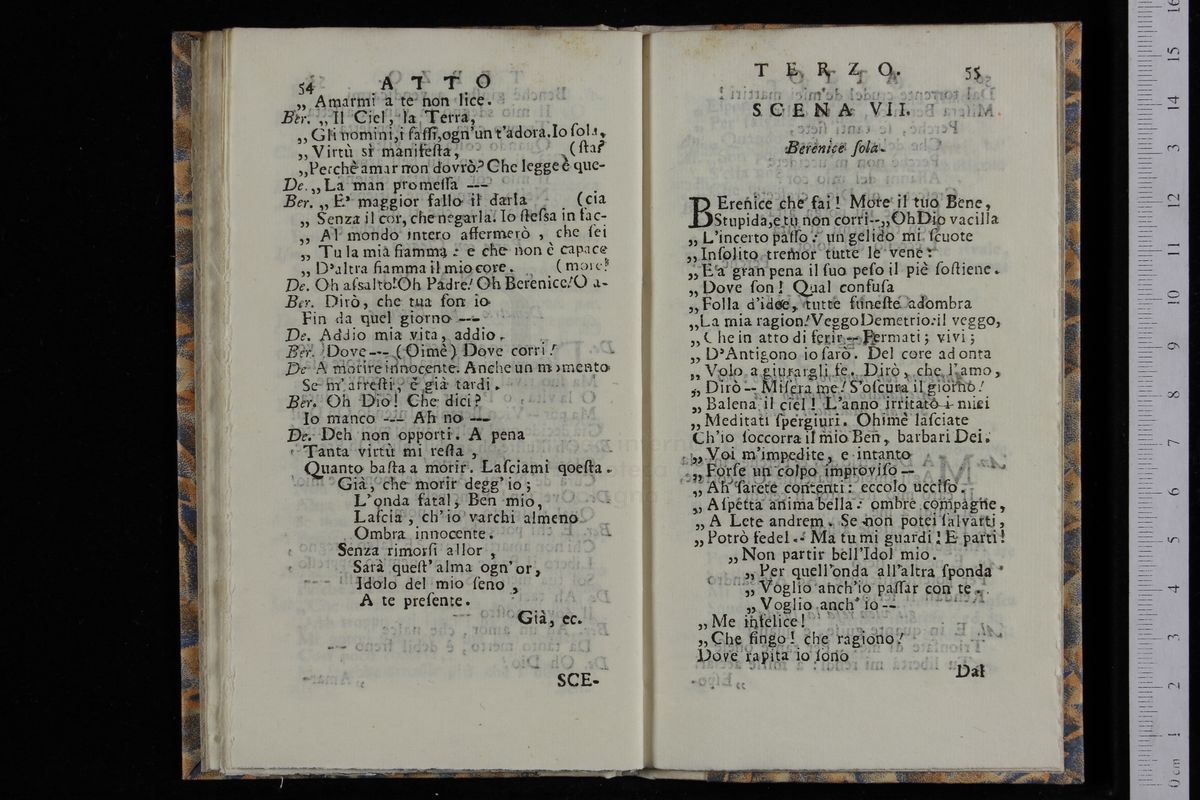 54 ATTO
„ Amarmi a te non lice.
Ber. „ Il Ciel, la Terra,
„ Gli uomini, i sassi, ogn'un t'adora. Io sola,
„ Virtù sì manifesta, (sta?
„ Perchè amar non dovrò? Che legge è que-
De. „ La man promessa ---
Ber. „ E' maggior fallo il darla (cia
„ Senza il cor, che negarla. Io stessa in fac-
„ Al mondo intero affermerò , che sei
„ Tu la mia fiamma : e che non è capace
„ D'altra fiamma il mio core. (more!
De. Oh assalto! Oh Padre! Oh Berenice! O a-
Ber. Dirò, che tua son io
Fin da quel giorno ---
De. Addio mia vita, addio.
Ber. Dove --- (Oimè) Dove corri!
De A morire innocente. Anche un momento
Se m'arresti, è già tardi.
Ber. Oh Dio! Che dici?
Io manco --- Ah no ---
De. Deh non opporti. A pena
Tanta virtù mi resta ,
Quanto basta a morir. Lasciami qoesta.
Già, che morir degg' io ;
L'onda fatal, Ben mio,
Lascia , ch'io varchi almeno
Ombra innocente.
Senza rimorsi allor ,
Sarà quest' alma ogn' or,
Idolo del mio seno ,
A te presente.
Già, ec.
SCE-
TERZO. 55
SCENA VII.
Berenice sola.
BErenice che fai! More il tuo Bene,
Stupida, e tu non corri-- „ Oh Dio vacilla
„ L'incerto passo : un gelido mi scuote
„ Insolito tremor tutte le vene :
„ E a gran pena il suo peso il piè sostiene.
„ Dove son! Qual confusa
„ Folla d'idee, tutte funeste adombra
„ La mia ragion! Veggo Demetrio: il veggo,
„ Che in atto di ferir -- Fermati ; vivi ;
„ D'Antigono io sarò. Del core ad onta
„ Volo a giurargli fe. Dirò, che l'amo,
„ Dirò -- Misera me! S'oscura il giorno!
„ Balena il ciel! L'anno irritato i miei
„ Meditati spergiuri. Ohimè lasciate
Ch'io soccorra il mio Ben, barbari Dei.
„ Voi m'impedite, e intanto
„ Forse un colpo improviso --
„ Ah sarete contenti : eccolo ucciso.
„ Aspetta anima bella : ombre compagne,
„ A Lete andrem. Se non potei salvarti,
„ Potrò fedel .. Ma tu mi guardi! E parti!
„ Non partir bell'Idol mio.
„ Per quell'onda all'altra sponda
„ Voglio anch'io passar con te.
„ Voglio anch' io --
„ Me infelice!
„ Che fingo! che ragiono!
Dove rapita io sono
Dal